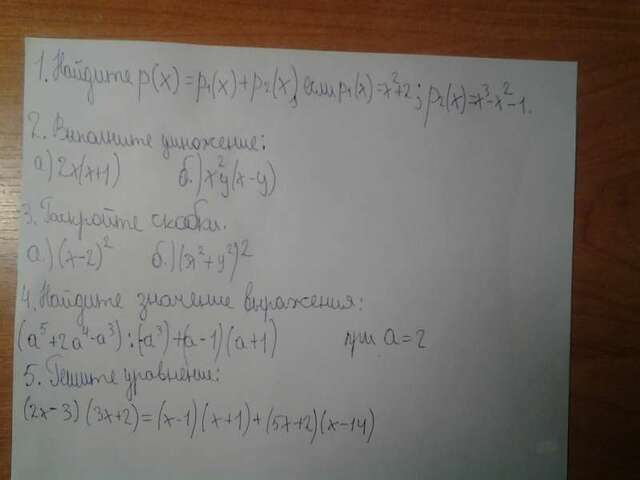 1. Найдите p(x) = p₁(x) + p₂(x), если p₁(x) = x²+2; p₂(x) = x³-x²-1.
2. Выполните умножение:
а) 2x(x+1) б.) x²y(x-y)
3. Раскройте скобки.
а.) (x-2)² б.) (x²+y²)²
4. Найдите значение выражения:
(a⁵+2a⁴-a³):(-a³)+(a-1)(a+1) при a=2
5. Решите уравнение:
(2x-3)(3x+2)=(x-1)(x+1)+(5x+2)(x-14)